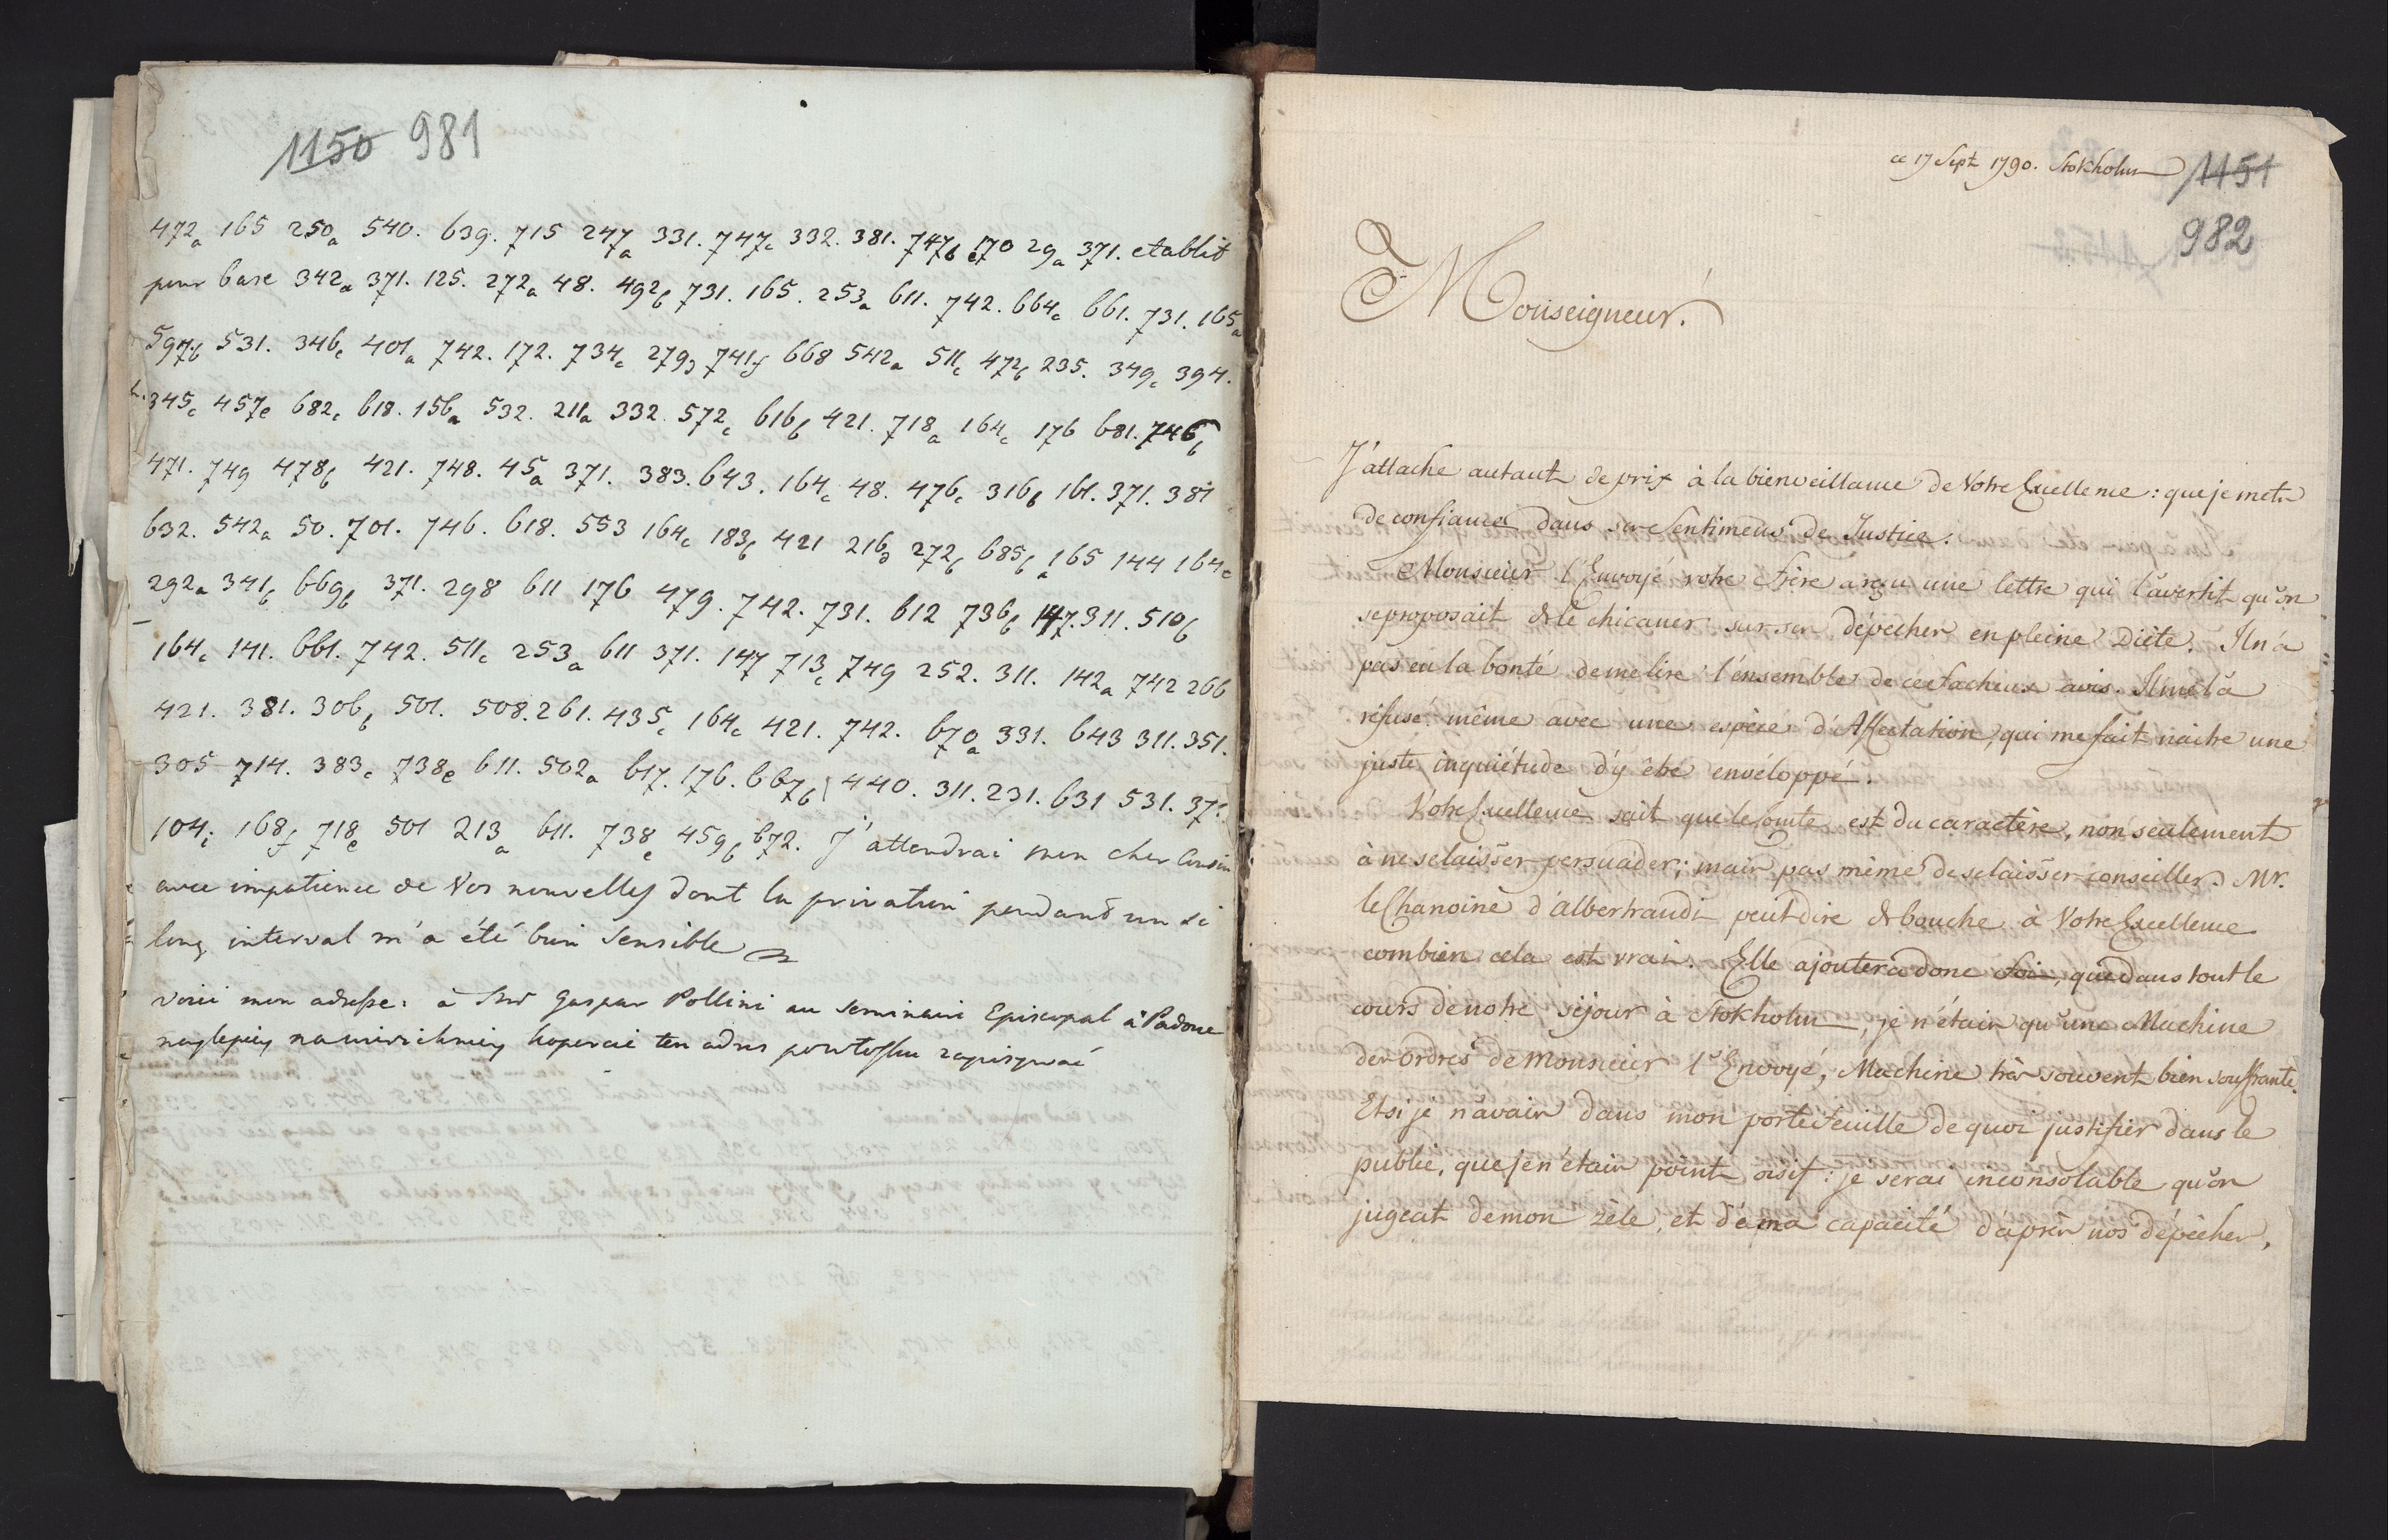 1150 981
472a 165 250a 540. 639. 715 247a 331. 747c 332. 381. 747b 170 29a 371. etablit
pour base 342a 371. 125. 272a 48. 492b 731. 165. 253a 611. 742. 664c 661. 731. 165a
597b 531. 346c 401a 742. 172. 734c 279d 741f 668 542a 511c 472b 235. 349c 394.
345c 457e 682c 618. 156a 532. 211a 332. 572c 616b 421. 718a 164c 176 681. 746b
471. 749 478b 421. 748. 45a 371. 383. 643. 164c 48. 476c 316b 161. 371. 381
632. 542a 50. 701. 746. 618. 553 164c 183b 421 216d 272b 685b 165a 144 164c
292a 341b 669b 371. 298 611 176 479. 742. 731. 612 736b 147. 311. 510b
164c 141. 661. 742. 511c 253a 611 371. 147 713c 749 252. 311. 142a 742 266
421. 381. 306b 501. 508. 261. 435c 164c 421. 742. 670a 331. 643 311. 351.
305 714. 383c 738e 611. 502a 617. 176. 667b 440. 311. 231. 631 531. 371
104i 168f 718e 501 213a 611. 738e 459b 672. J'attendrai mon cher Cousin
avec impatience de Vos nouvelles dont la privation pendant un si
long interval m'a été bien sensible
voici mon adresse: à Mr Gaspar Pollini au seminaire Episcopal à Padoue
ten adres
ce 17 Sept 1790. Stokholm 1151
982
Monseigneur!
J'attache autant de prix à la bienveillance de Votre Excellence: que je mets
de confiance dans ses Sentimens de Justice.
Monsieur l'Envoyé votre Frère a reçu une lettre qui l'avertit qu'on
se proposait de le chicaner sur ses dépêches en pleine Diéte. Il n'a
pas eu la bonté de me lire l'ensemble de cet facheux avis. Il me l'a
réfusé même avec une espèce d'Affectation, qui me fait naitre une
juste inquiétude d'y êtré envéloppé.
Votre Excellence sait que le Comte est du caractère, non seulement
à ne se laisser persuader; mais pas même de se laisser conseiller. Mr.
le Chanoine d'Albertrandi peut dire de bouche à Votre Excellence
combien cela est vrai. Elle ajoutera donc foi, que dans tout le
cours de notre séjour à Stokholm, je n'étais qu'une Machine
des Ordres de Monsieur l'Envoyé, Machine très souvent bien souffrante.
Et si je n'avais dans mon portefeuille de quoi justifier dans le
public, que je n'étais point oisif: je serai inconsolable qu'on
jugeat de mon zèle, et de ma capacité d'après nos dépêches,